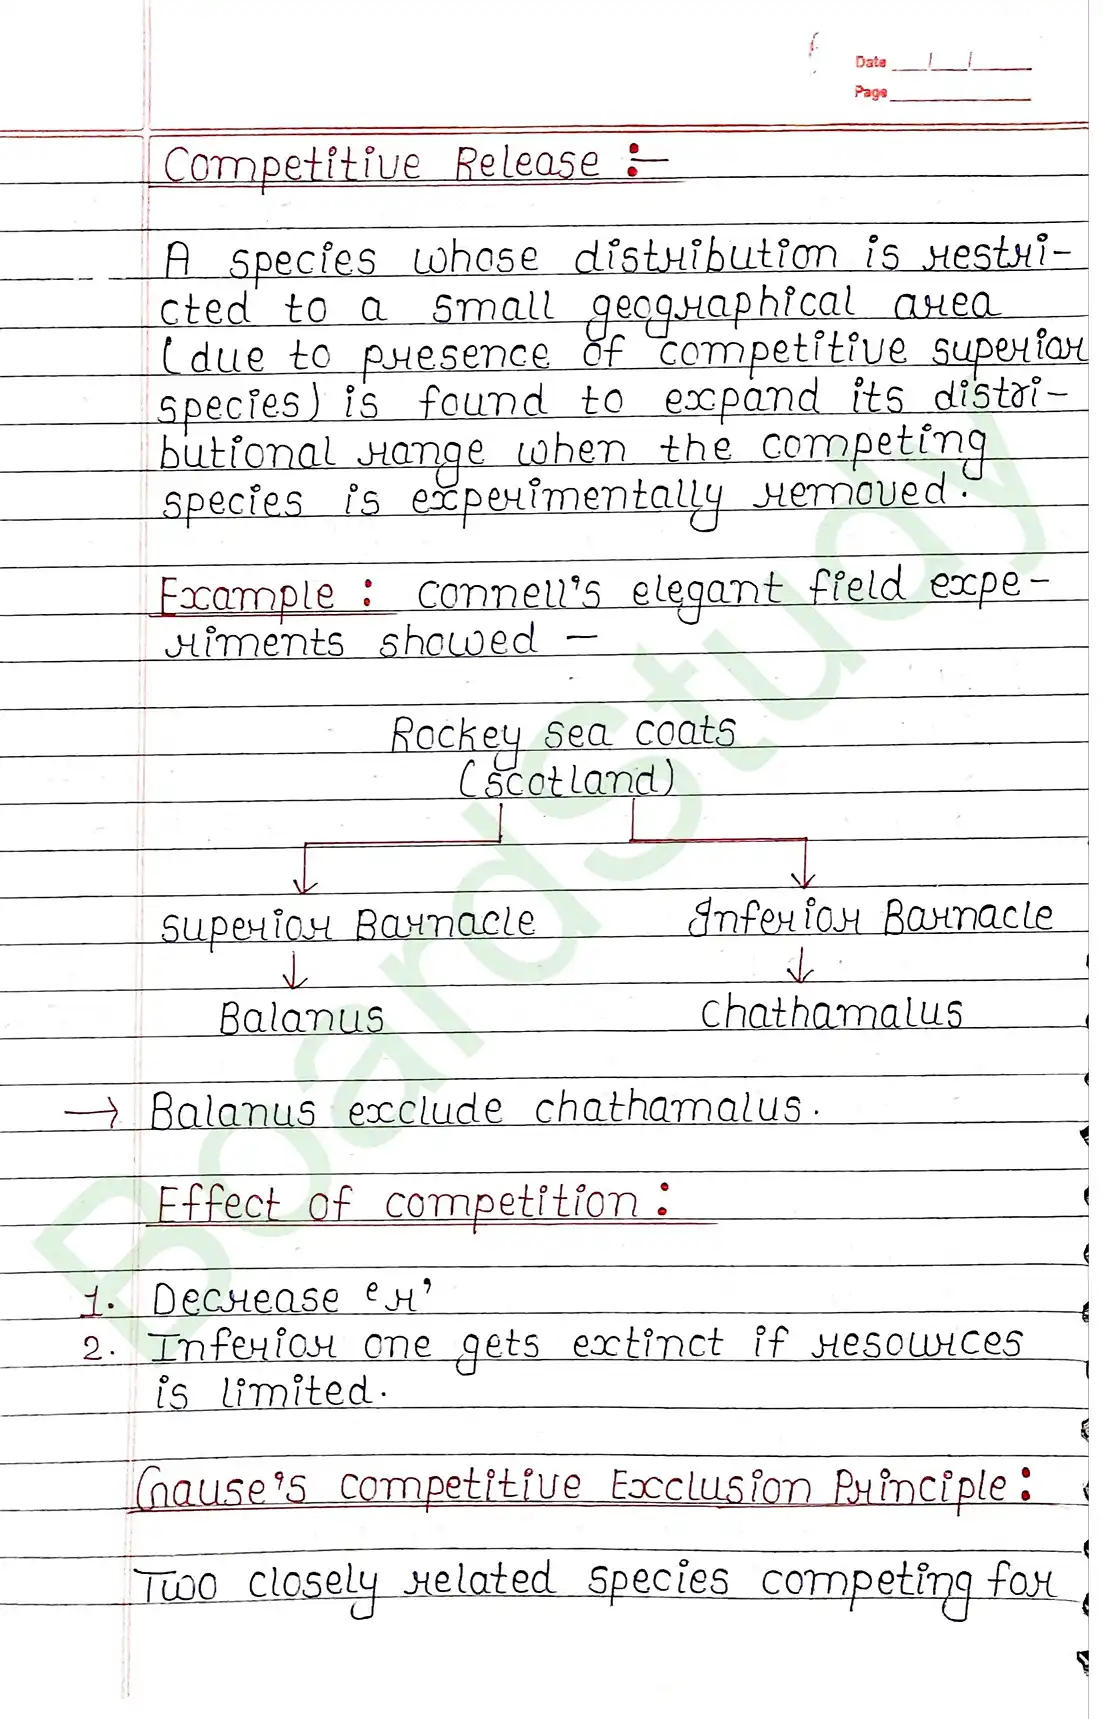 Date / /
Page
Competitive Release :-
A species whose distribution is restri-
cted to a small geographical area
(due to presence of competitive superior
species) is found to expand its distri-
butional range when the competing
species is experimentally removed.
Example : Connell's elegant field expe-
riments showed -
Rockey sea coats
(Scotland)
Superior Barnacle Inferior Barnacle
Balanus Chathamalus
→ Balanus exclude chathamalus.
Effect of competition :
1. Decrease 'r'
2. Inferior one gets extinct if resources
is limited.
Gause's competitive Exclusion Principle :
Two closely related species competing for
BoardStudy